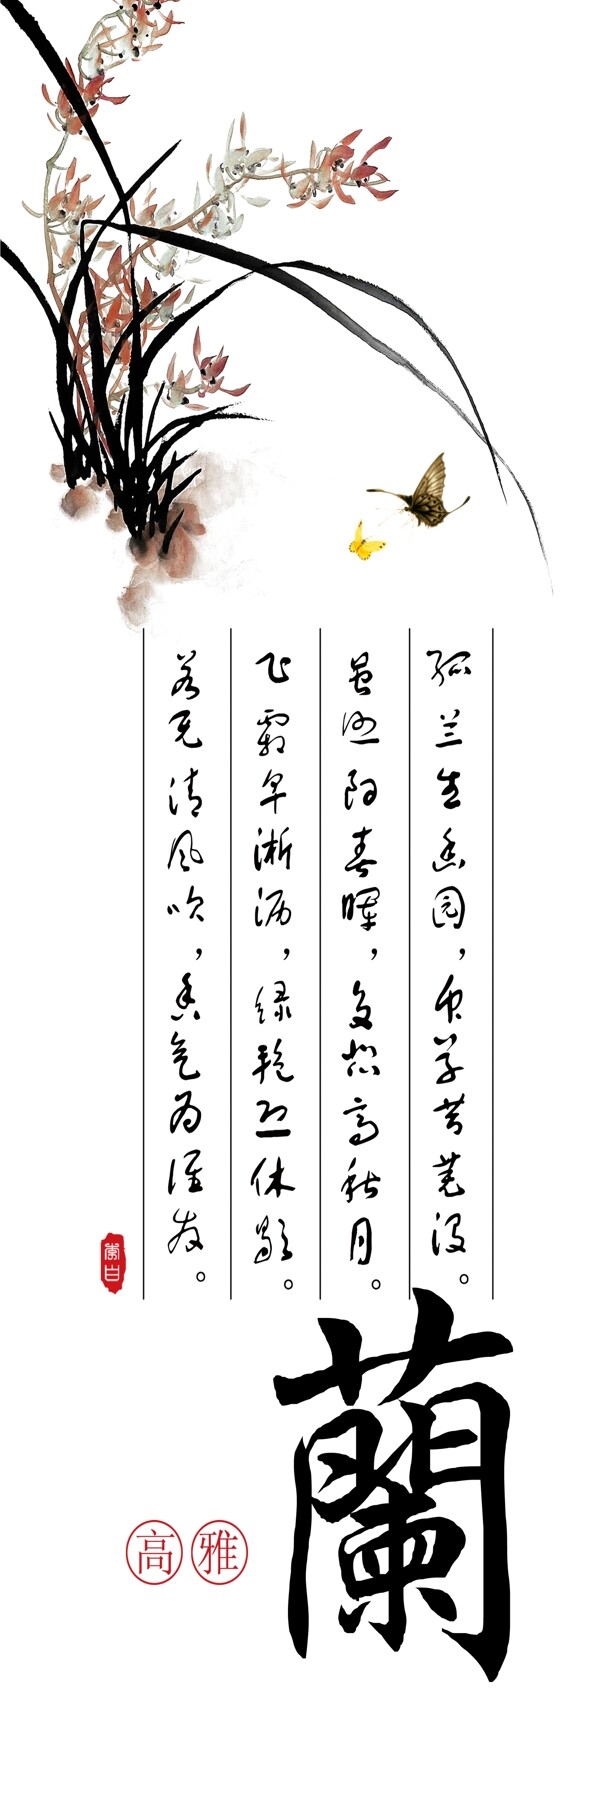 孤兰生幽园，众草共芜没。
虽照阳春晖，复悲高秋月。
飞霜早淅沥，绿艳恐休歇。
若无清风吹，香气为谁发。
李白
蘭
高雅